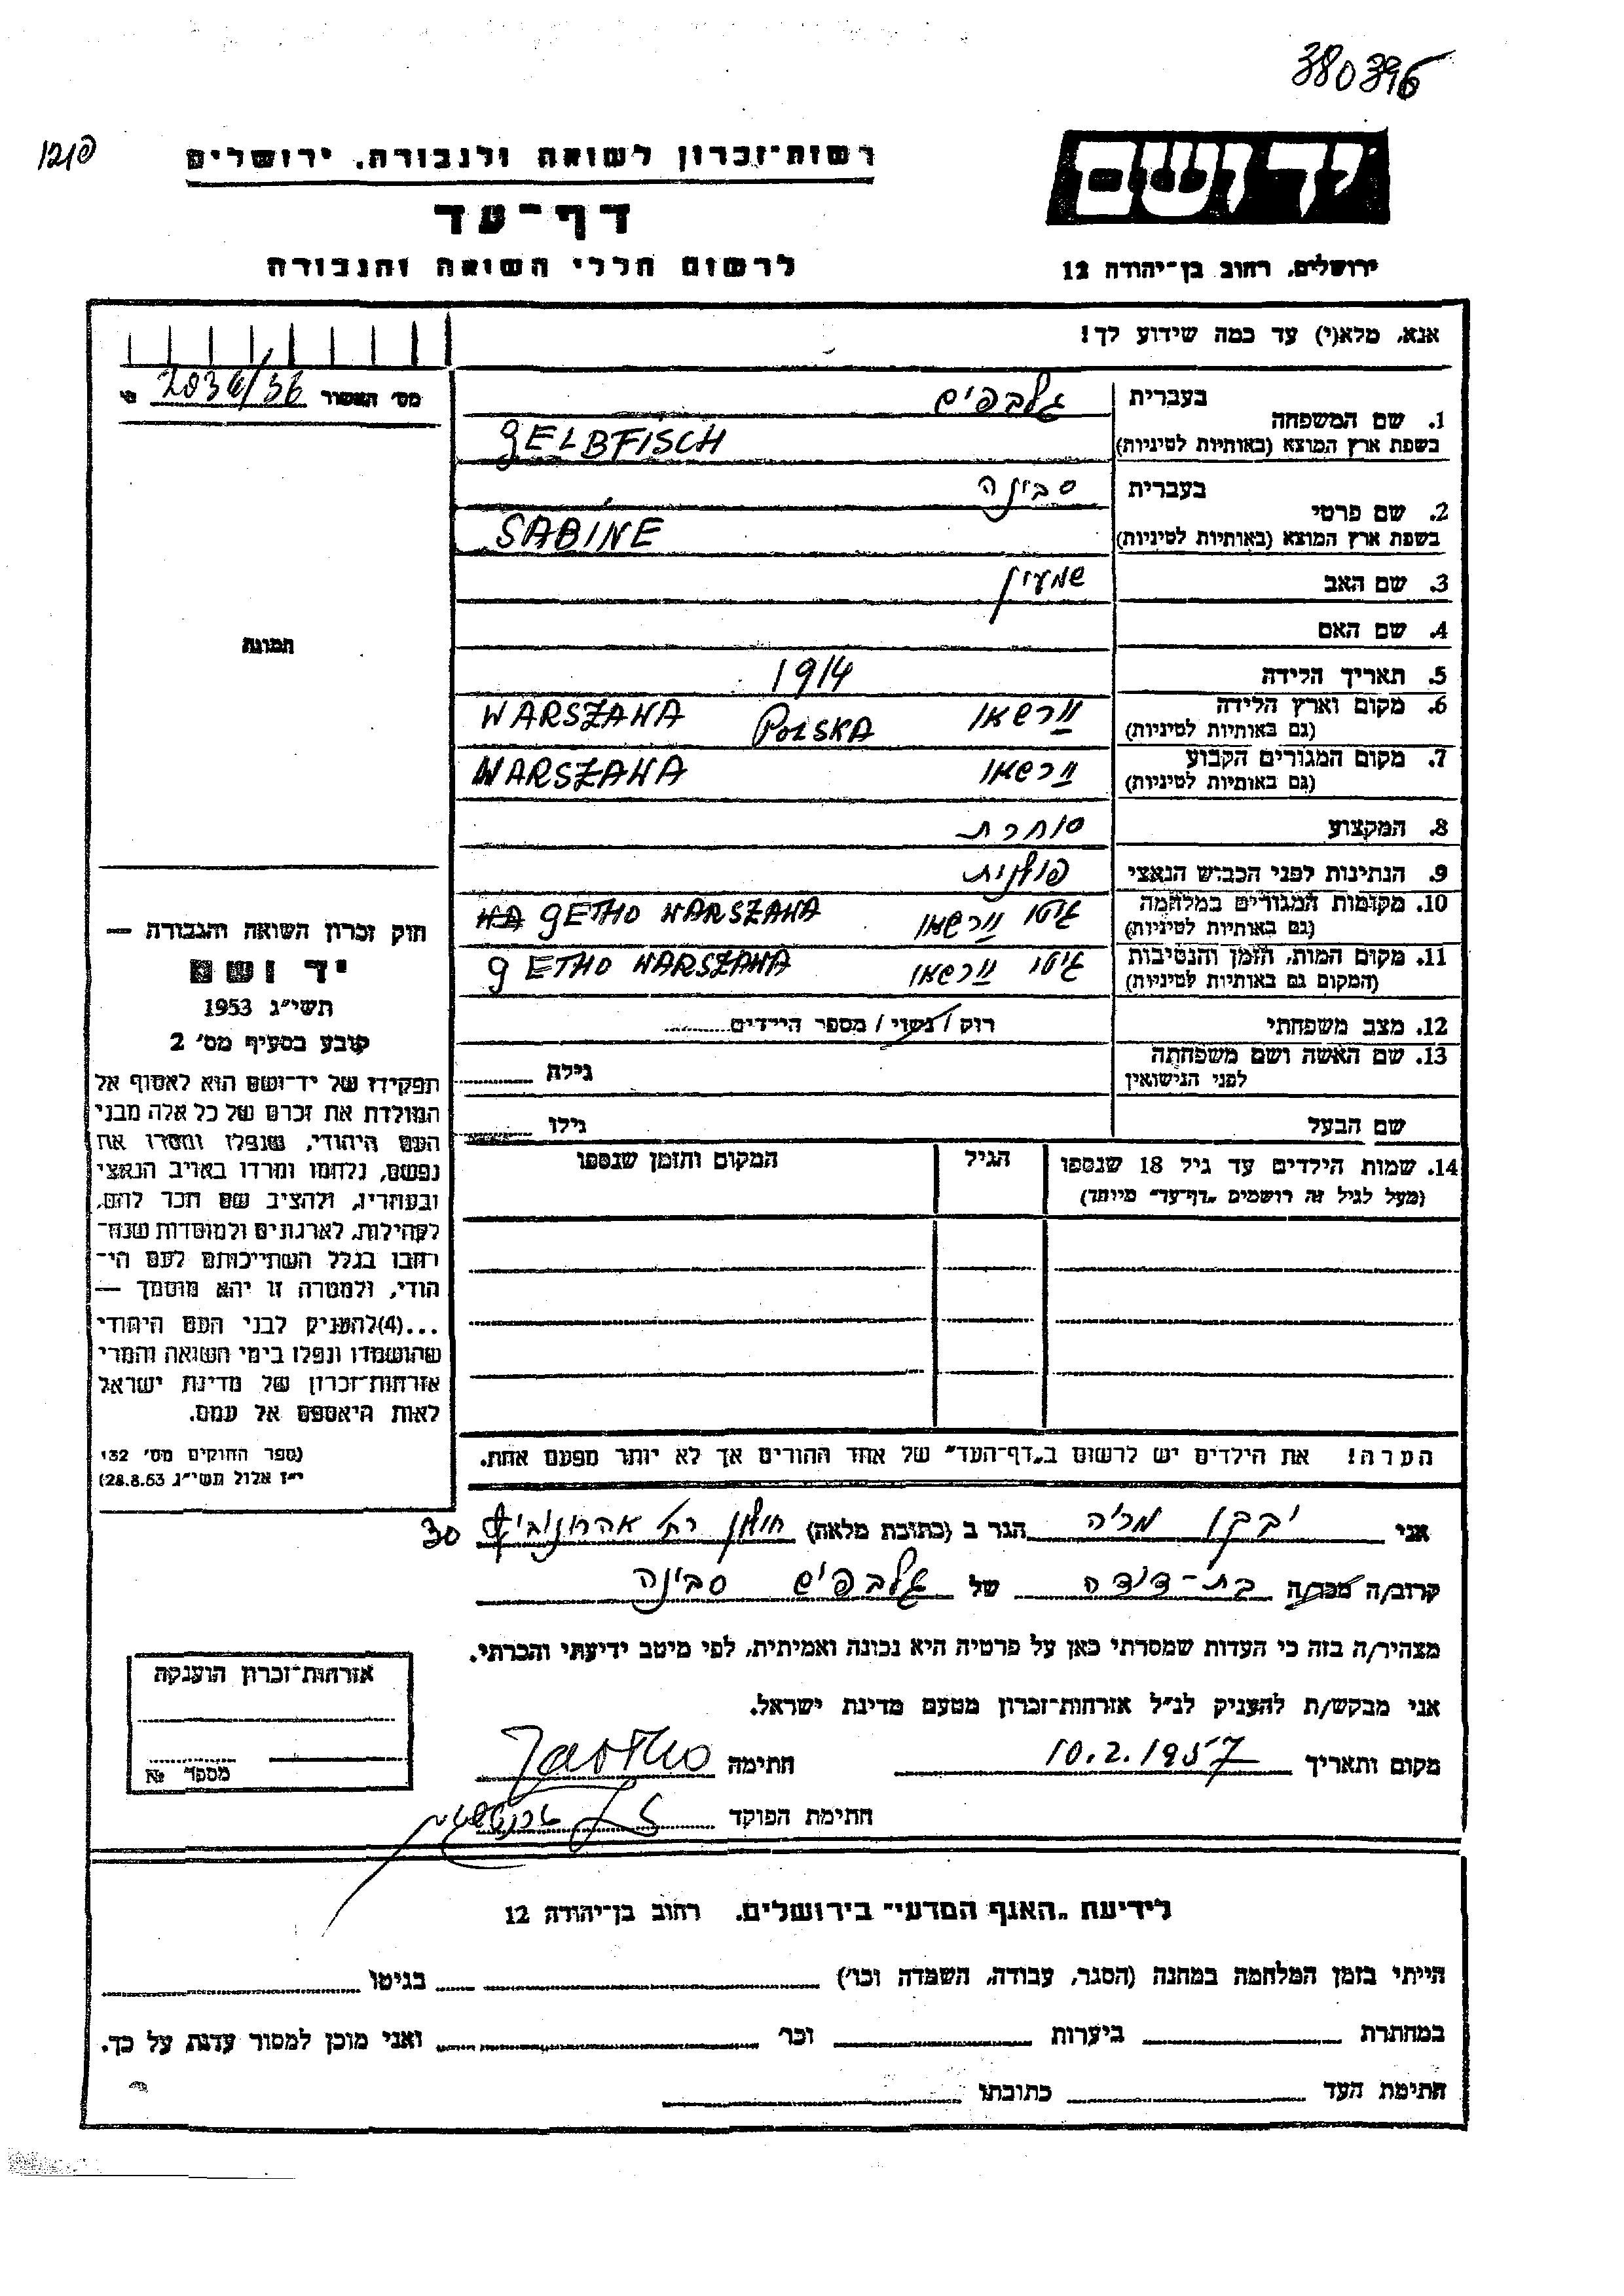 380396
פ121
יד ושם
רשות־זכרון לשואה ולגבורה, ירושלים
דף־עד
לרשום חללי השואה והגבורה
ירושלים, רחוב בן־יהודה 12
אנא, מלא(י) עד כמה שידוע לך!
1. שם המשפחה
בעברית גלבפיש
בשפת ארץ המוצא (באותיות לטיניות) GELBFISCH
2. שם פרטי
בעברית סבינה
בשפת ארץ המוצא (באותיות לטיניות) SABINE
3. שם האב שמעון
4. שם האם
5. תאריך הלידה 1914
6. מקום וארץ הלידה וורשאו POLSKA WARSZAWA
(גם באותיות לטיניות)
7. מקום המגורים הקבוע וורשאו WARSZAWA
(גם באותיות לטיניות)
8. המקצוע סוחרת
9. הנתינות לפני הכבוש הנאצי פולנית
10. מקומות המגורים במלחמה גיטו וורשאו GETHO WARSZAWA
(גם באותיות לטיניות)
11. מקום המות, הזמן והנסיבות גיטו וורשאו GETHO WARSZAWA
(המקום גם באותיות לטיניות)
12. מצב משפחתי רוק / נשוי / מספר הילדים
13. שם האשה ושם משפחתה גילה
לפני הנישואין
שם הבעל גילו
14. שמות הילדים עד גיל 18 שנספו הגיל המקום והזמן שנספו
(מעל לגיל זה רושמים „דף־עד” מיוחד)
הערה! את הילדים יש לרשום ב„דף־העד” של אחד ההורים אך לא יותר מפעם אחת.
מס' האשור 2036/36
תמונה
חוק זכרון השואה והגבורה —
יד ושם
תשי״ג 1953
קובע בסעיף מס' 2
תפקידו של יד־ושם הוא לאסוף אל
המולדת את זכרם של כל אלה מבני
העם היהודי, שנפלו ומסרו את
נפשם, נלחמו ומרדו באויב הנאצי
ובעוזריו, ולהציב שם וזכר להם,
לקהילות, לארגונים ולמוסדות שנח־
רבו בגלל השתייכותם לעם הי־
הודי, ולמטרה זו יהא מוסמך —
...(4)להעניק לבני העם היהודי
שהושמדו ונפלו בימי השואה והמרי
אזרחות־זכרון של מדינת ישראל
לאות היאספם אל עמם.
(ספר החוקים מס' 132
י״ז אלול תשי״ג 28.8.53)
אני מריה הגר ב (כתובת מלאה) חולון רח' אהרונוביץ 30
קרוב/ה מכר/ה בת-דודה של גלבפיש סבינה
מצהיר/ה בזה כי העדות שמסרתי כאן על פרטיה היא נכונה ואמיתית, לפי מיטב ידיעתי והכרתי.
אני מבקש/ת להעניק לנ״ל אזרחות־זכרון מטעם מדינת ישראל.
מקום ותאריך 10.2.1957 חתימה
חתימת הפוקד
אזרחות־זכרון הוענקה
מספר №
לידיעת „האגף המדעי” בירושלים, רחוב בן־יהודה 12
הייתי בזמן המלחמה במחנה (הסגר, עבודה, השמדה וכו') בגיטו
במחתרת ביערות וכו' ואני מוכן למסור עדות על כך.
חתימת העד כתובתו